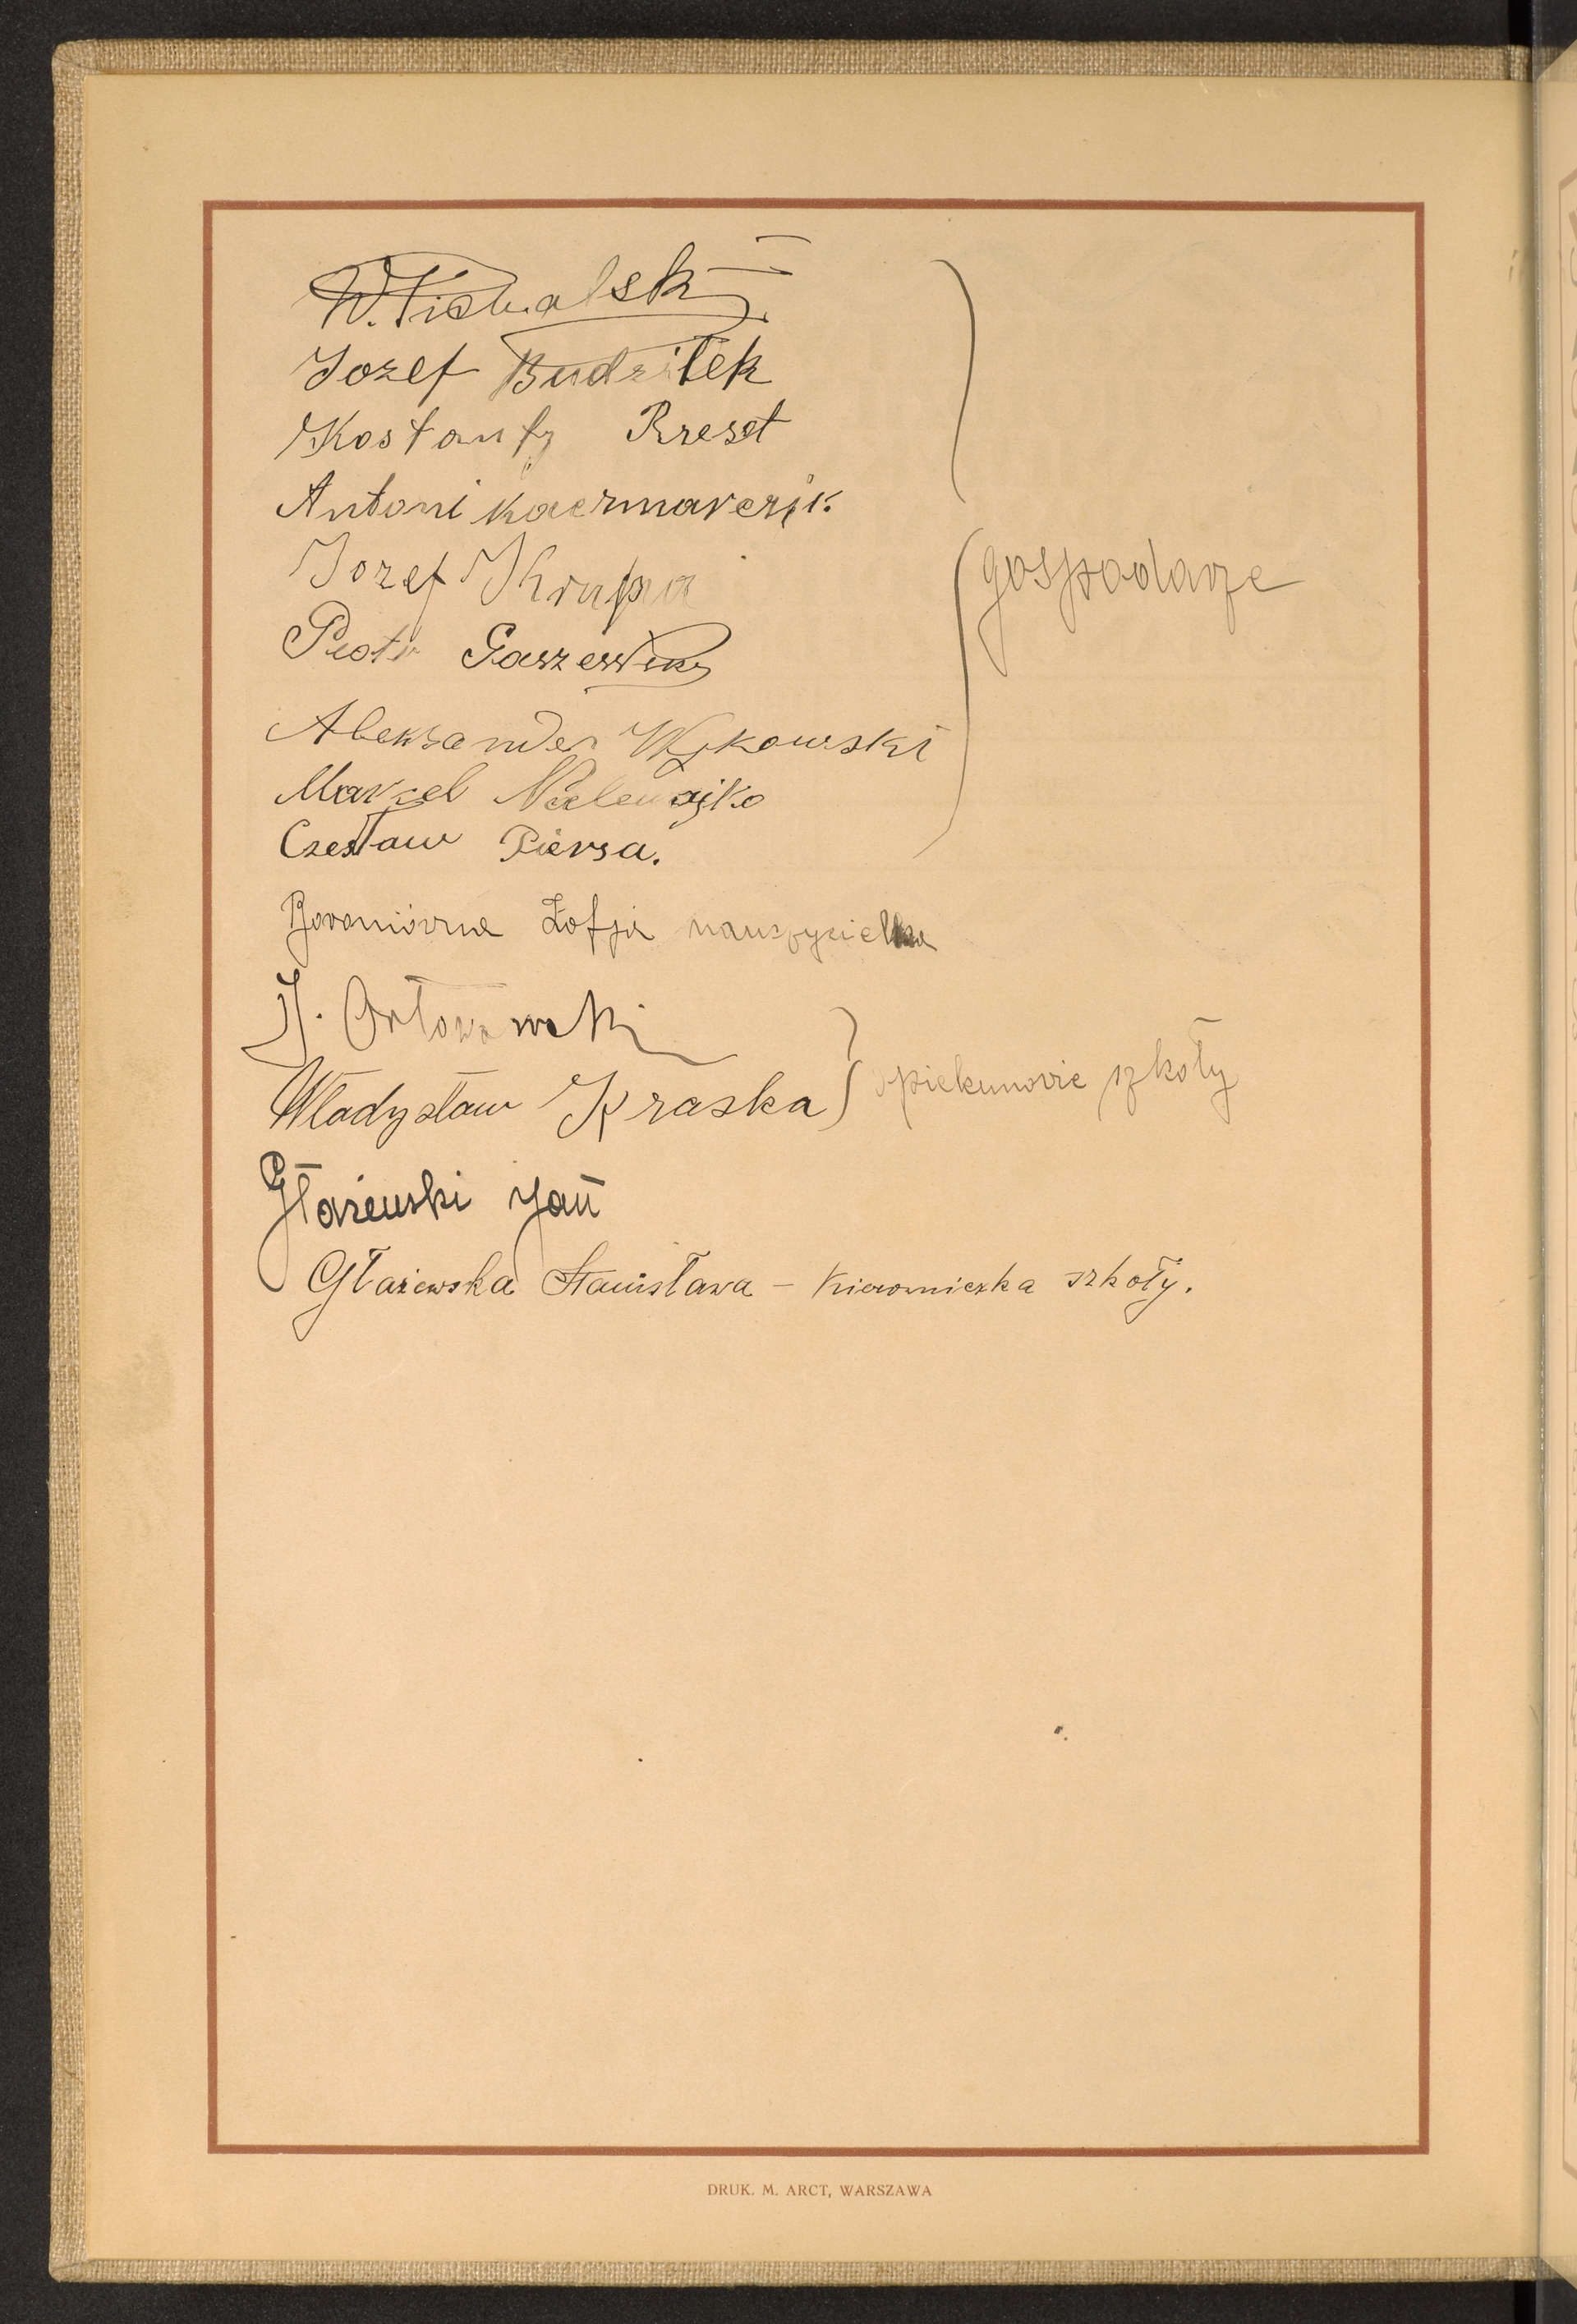 W. Michalski
Jozef Budzilek
Kostanty
Antoni Kaczmarczik.
Jozef Krupa
Piotr Gaszewski
Aleksander Wykowski
gospodarze
Marcel
Czesław Piersa.
Baroniówna Zofja nauczycielka
J. Orłowski
Władysław Kraska
opiekunowie szkoły
Głażewski Jan
Głażewska Stanisława – Kierowniczka szkoły.
DRUK. M. ARCT, WARSZAWA